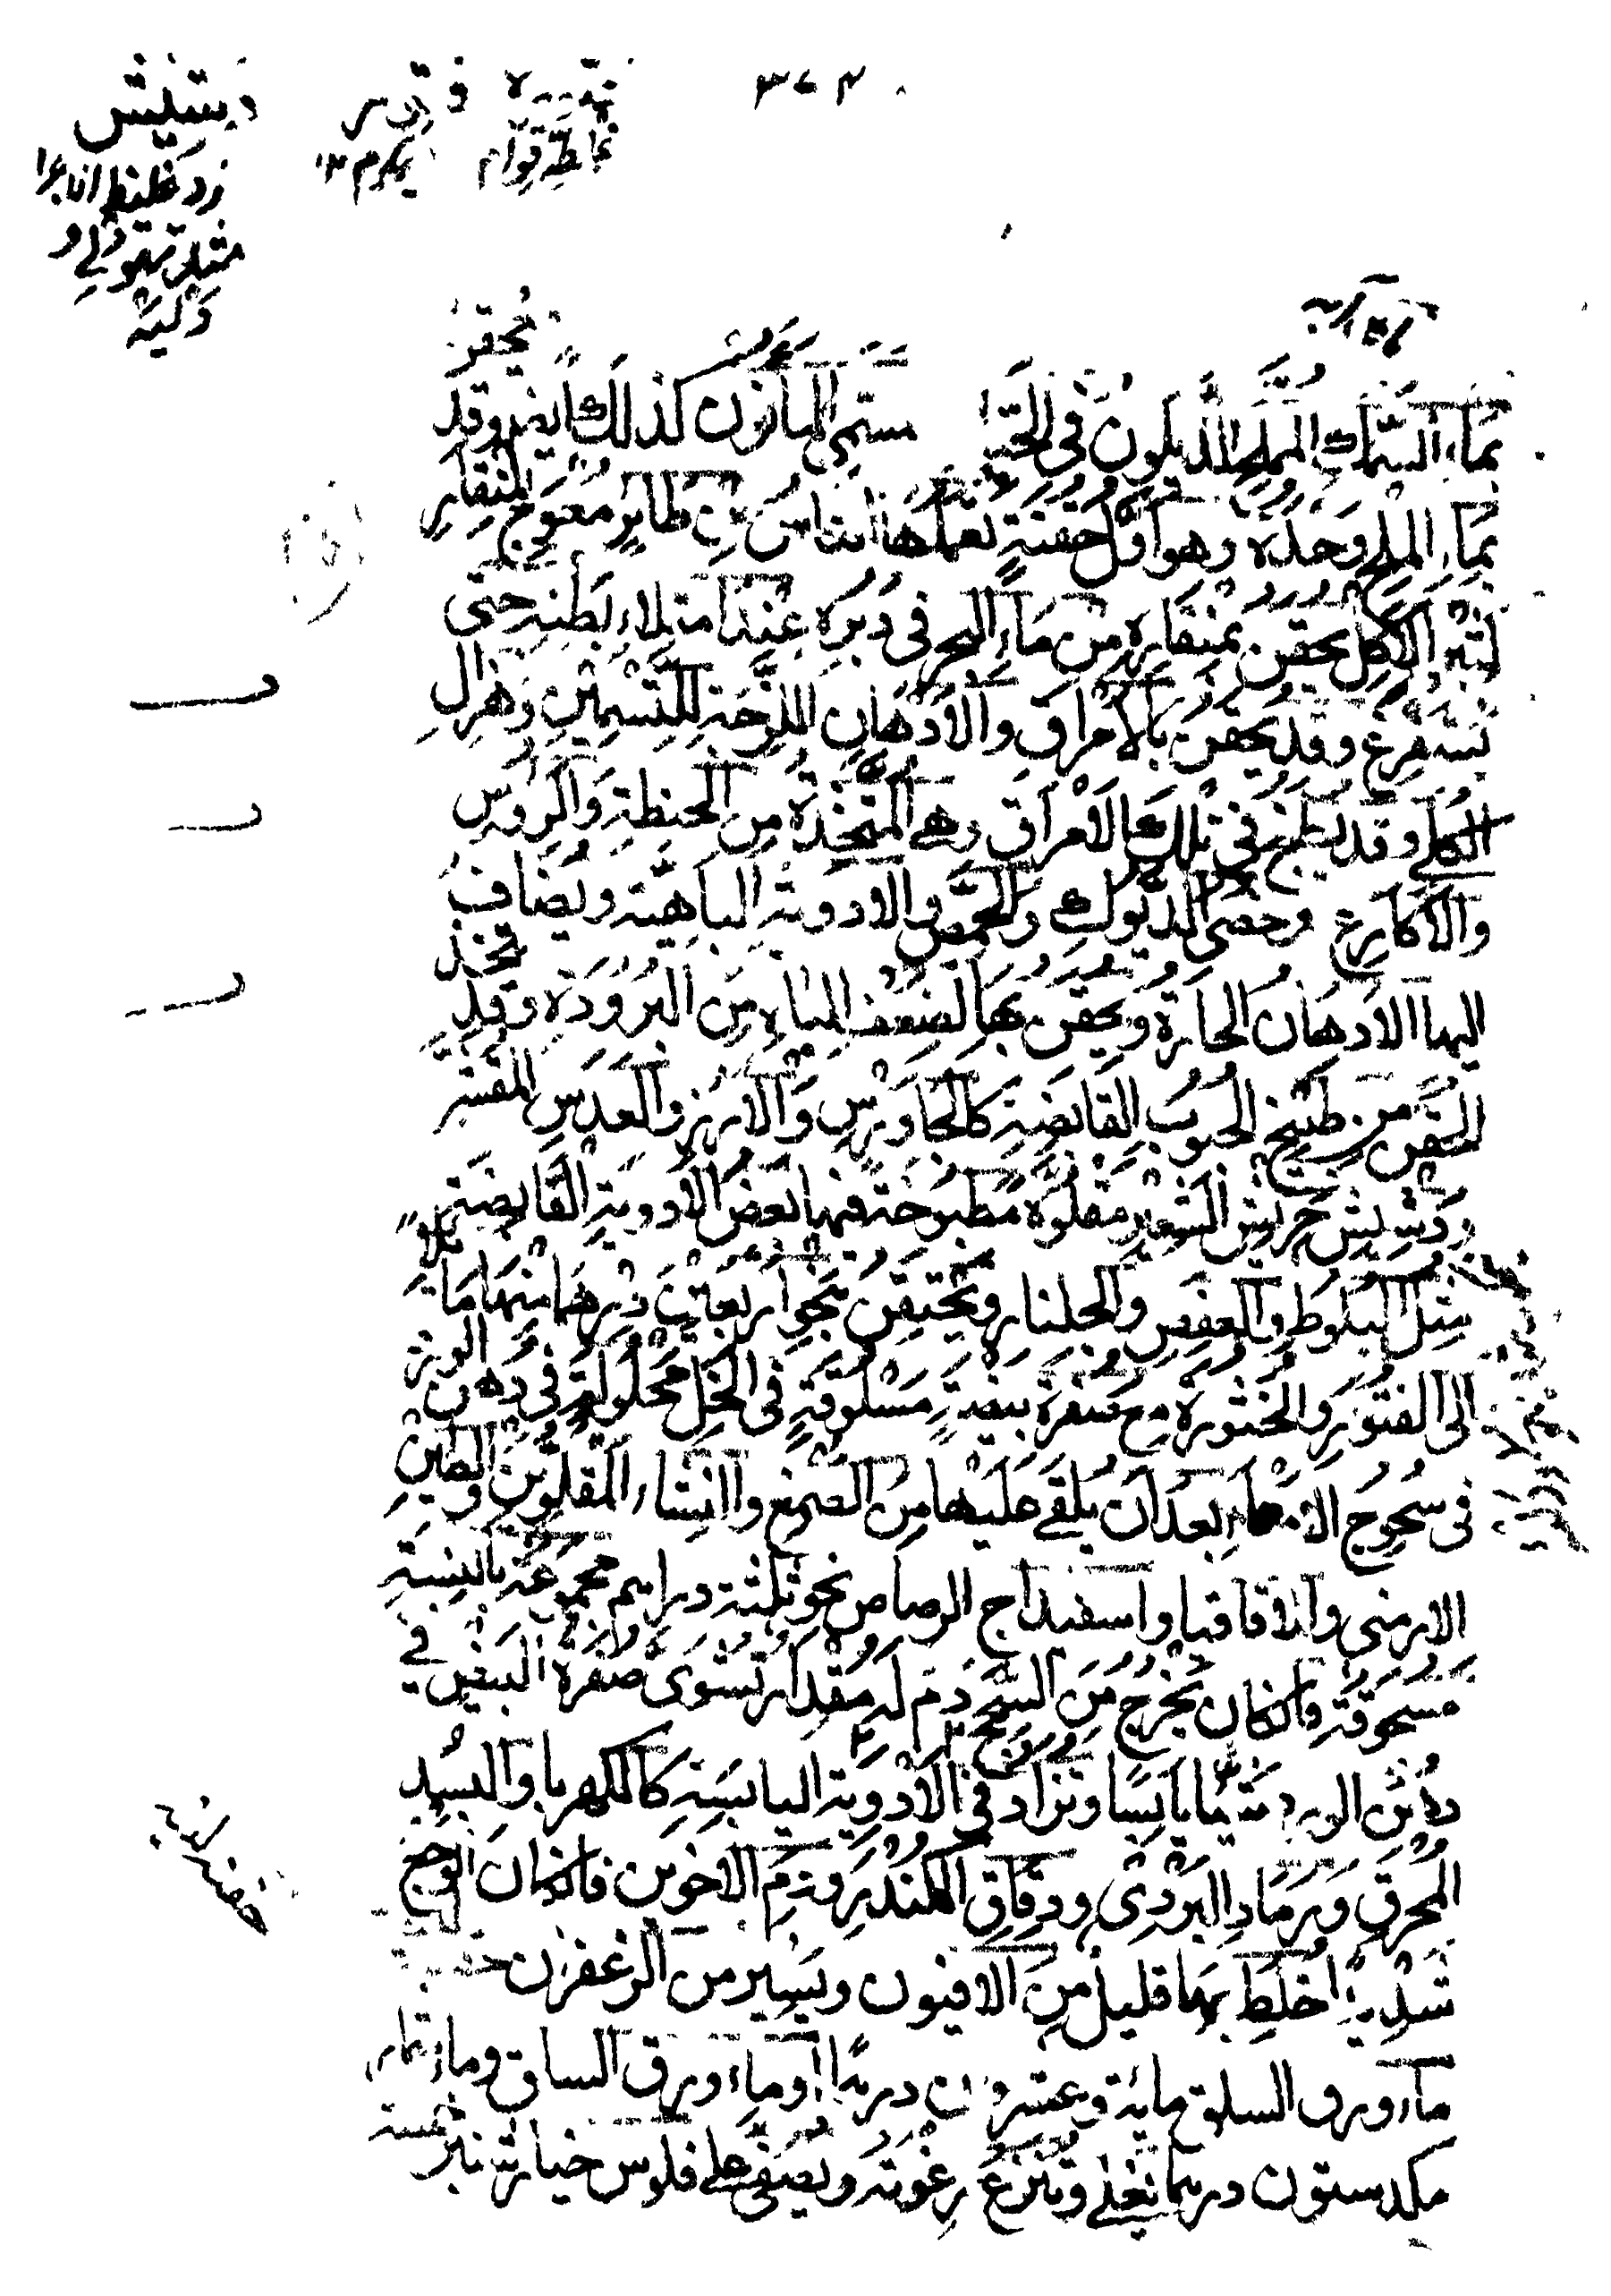 دشيش
زرد غليظ
٣٧٤
بماء السمك المملح الذى يكون فى الحب مستحى المانون كذلك ايضا وقد يحقن
بماء الملح وحده وهو اول حقنة تعلمها الناس من طائر معوج المنقار
كثير الاكل يحقن بمنقاره من ماء البحر فى دبره عند امتلاء بطنه حتى
يستفرغ وقد يحقن بالامراق والادهان اللزجة للتسمين وهزال
الكلى وقد يطبخ فى تلك الامراق وهى المتخذة من الحنطة والرؤس
والاكارع وخصى الديوك والحمص والادوية الباهية ويضاف
اليها الادهان الحارة ويحقن بها لضعف الباه من البرودة وقد يتخذ
الحقن من طبيخ الحبوب القابضة كالجاورس والارز والعدس المقشر
ودشيش جريش الشعير مقلوة مطبوخة فيها بعض الادوية القابضة
مثل البلوط والعفص والجلنار ويحتقن بنحو اربعين درهما منها مايلا
الى الفتور والخثورة مع صفرة بيضة مسلوقة فى الخل محلولة فى دهن الورد
فى سحوج الامعاء بعد ان يلقى عليها من الصمغ والنشاء المقلوين والطين
الارمنى والاقاقيا واسفيداج الرصاص نحو ثلثة دراهم مجموعة بالنسبة
مسحوقة وان كان يخرج من السحج دم له مقدار تشوى صفرة البيض فى
دهن الورد شيا يابسا وتزاد فى الادوية اليابسة كالكهربا والبسد
المحرق ورماد البردى ودقاق الكندر ودم الاخوين فان كان الوجع
شديدا خلط بها قليل من الافيون ويسير من الزعفران
ماء ورق السلق ماية وعشرون درهما وماء ورق الساق وماء
مكد ستون درهما يغلى وتنزع رغوته ويصفى على فلوس خيار شنبر خمسة